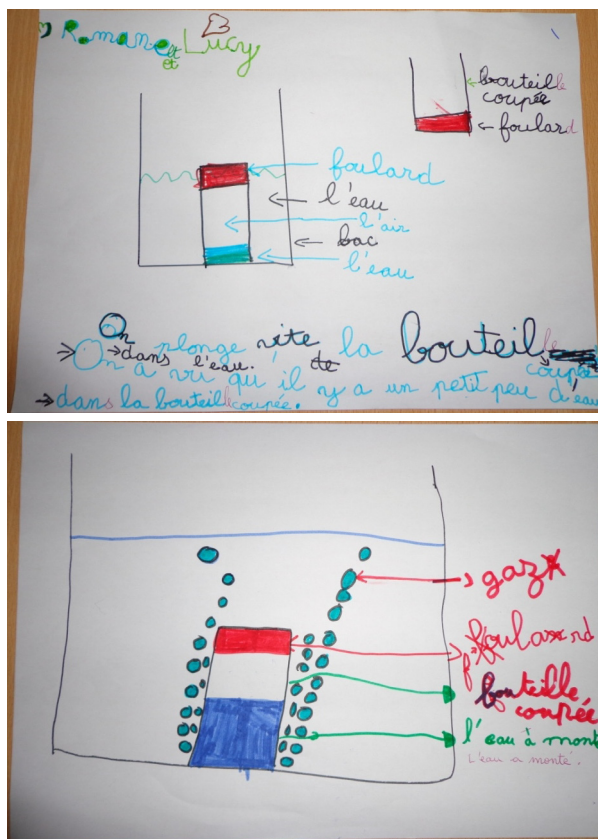 Romane et
et Lucy B
bouteille
coupée
foulard
foulard
l'eau
l'air
bac
l'eau
On plonge vite la bouteille
coupée
dans l'eau. de
On a vu qu'il y a un petit peu d'eau
dans la bouteille coupée.
gaz
foulard
bouteille
coupée
l'eau à monté
L'eau a monté.